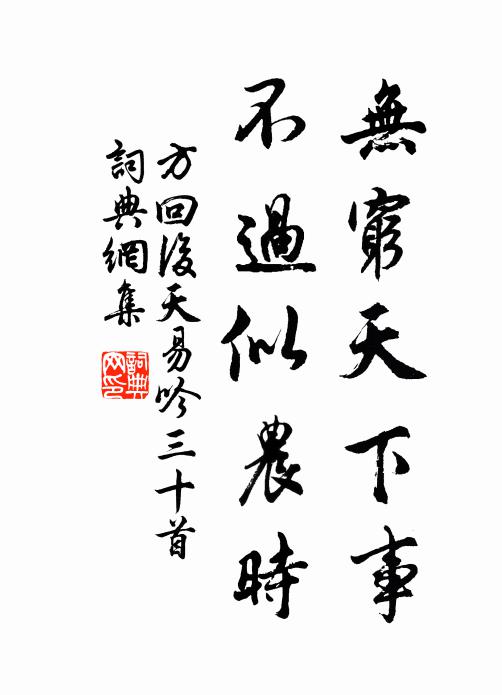 無窮天下事
不過似農時
方回後天易吟三十首
詞典網集
詞典網印